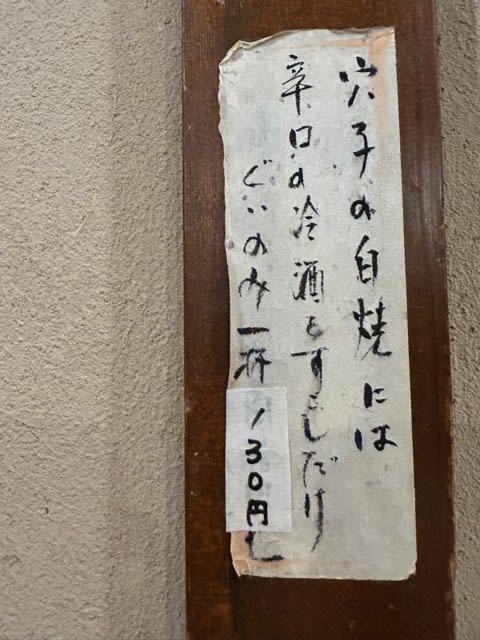 穴子の白焼には
辛口の冷酒をすこしだけ
ぐいのみ一杯 130円
し